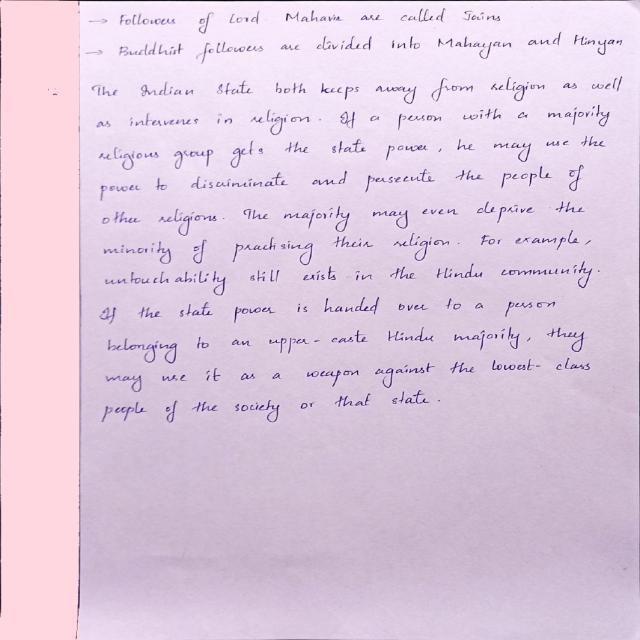 → Followers of Lord Mahavir are called Jains
→ Buddhist followers are divided into Mahayan and Hinyan
The Indian State both keeps away from religion as well
as intervenes in religion. If a person with a majority
religious group gets the state power, he may use the
power to discriminate and persecute the people of
other religions. The majority may even deprive the
minority of practising their religion. For example,
untouchability still exists in the Hindu community.
If the state power is handed over to a person
belonging to an upper-caste Hindu majority, they
may use it as a weapon against the lowest-class
people of the society or that state.